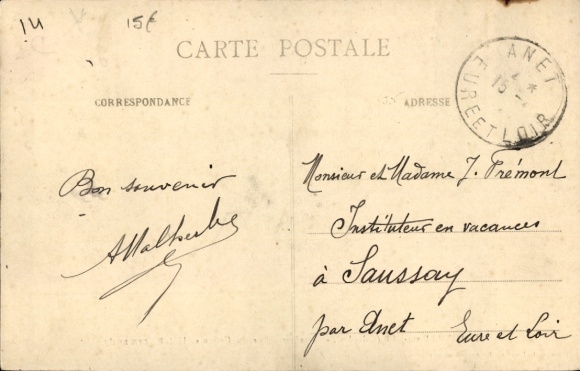 14
15€
CARTE POSTALE
CORRESPONDANCE
ADRESSE
ANET
15
EURE ET LOIR
Bon souvenir
Monsieur et Madame J. Frémont
Instituteur en vacances
à Saussay
par Anet Eure et Loir